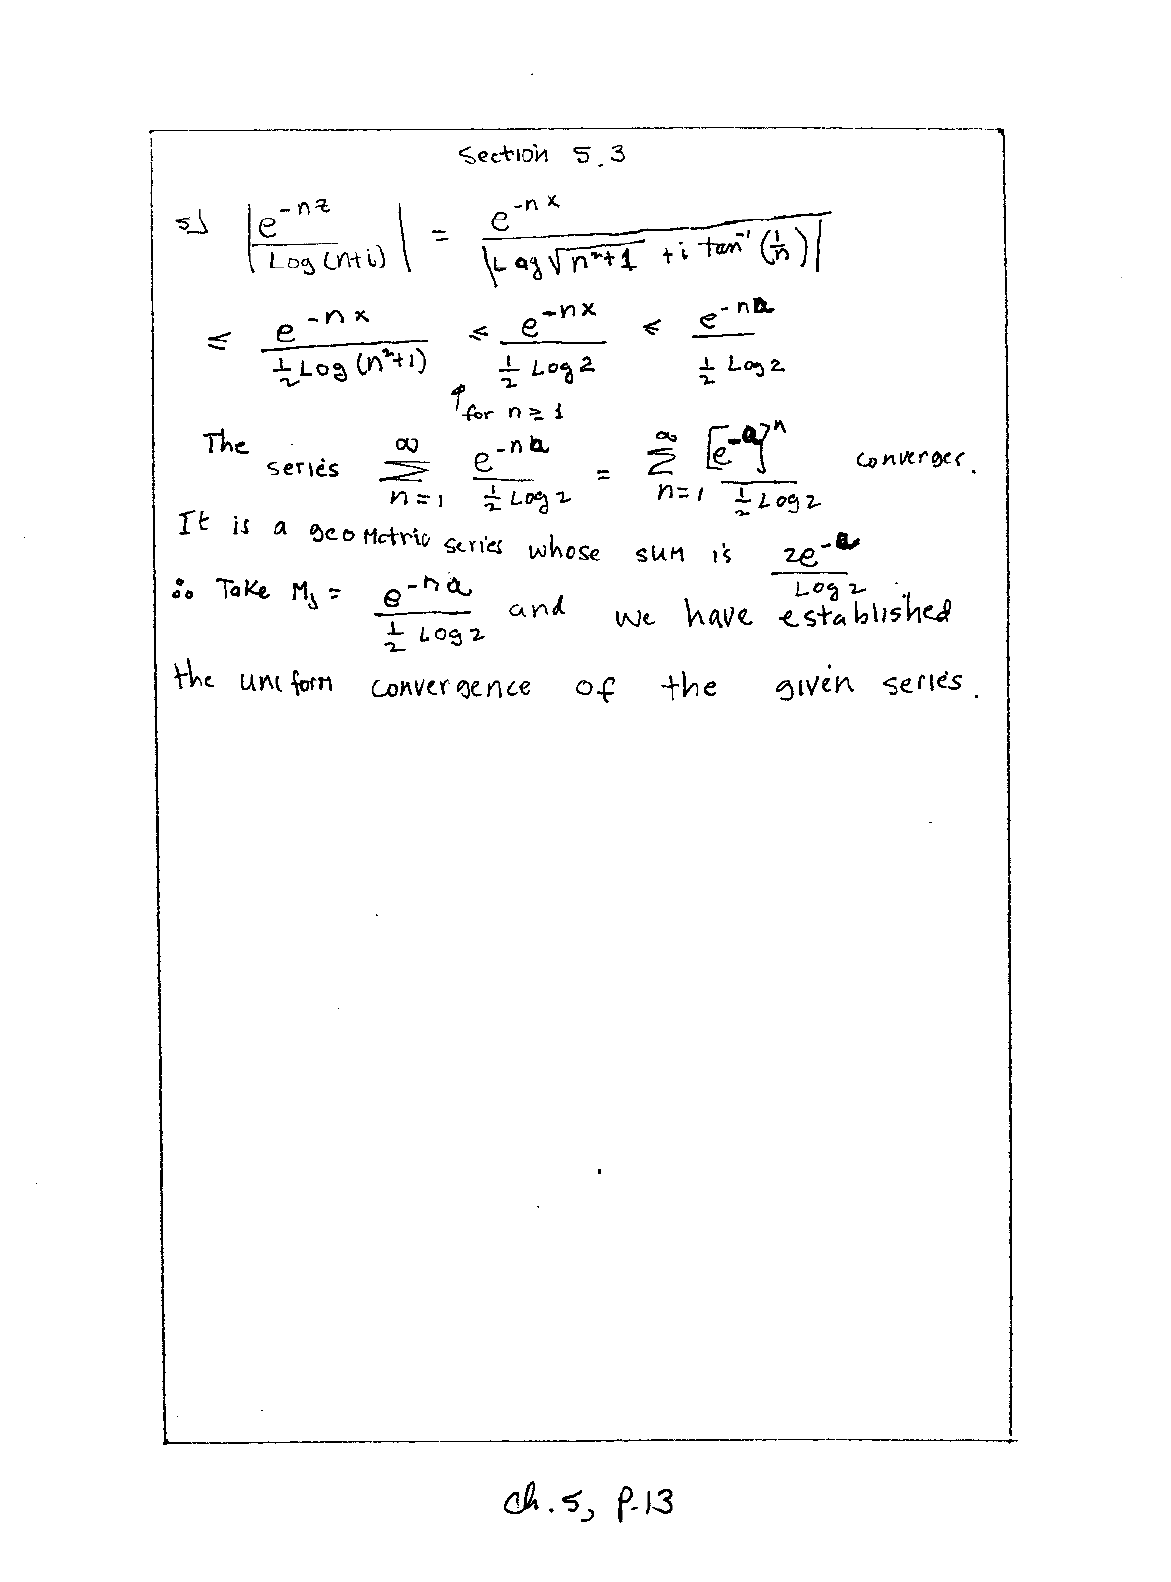 Section 5.3
5) |e^{-nz} / Log(n+i)| = e^{-nx} / |Log √(n²+1) + i tan⁻¹(1/n)|
≤ e^{-nx} / (½ Log(n²+1)) ≤ e^{-nx} / (½ Log 2) ≤ e^{-na} / (½ Log 2)
↑ for n ≥ 1
The series ∑_{n=1}^{∞} e^{-na} / (½ Log 2) = ∑_{n=1}^{∞} [e^{-a}]^n / (½ Log 2) converges.
It is a geometric series whose sum is 2e^{-a} / Log 2 .
∴ Take M_j = e^{-na} / (½ Log 2) and we have established
the uniform convergence of the given series.
Ch. 5, p.13